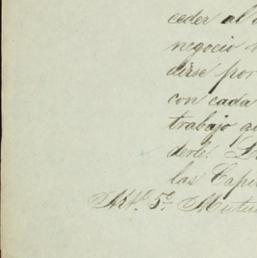 ceder al
negocio
dirse por
con cada
trabajo
derle.
las Capi
5º Mutu